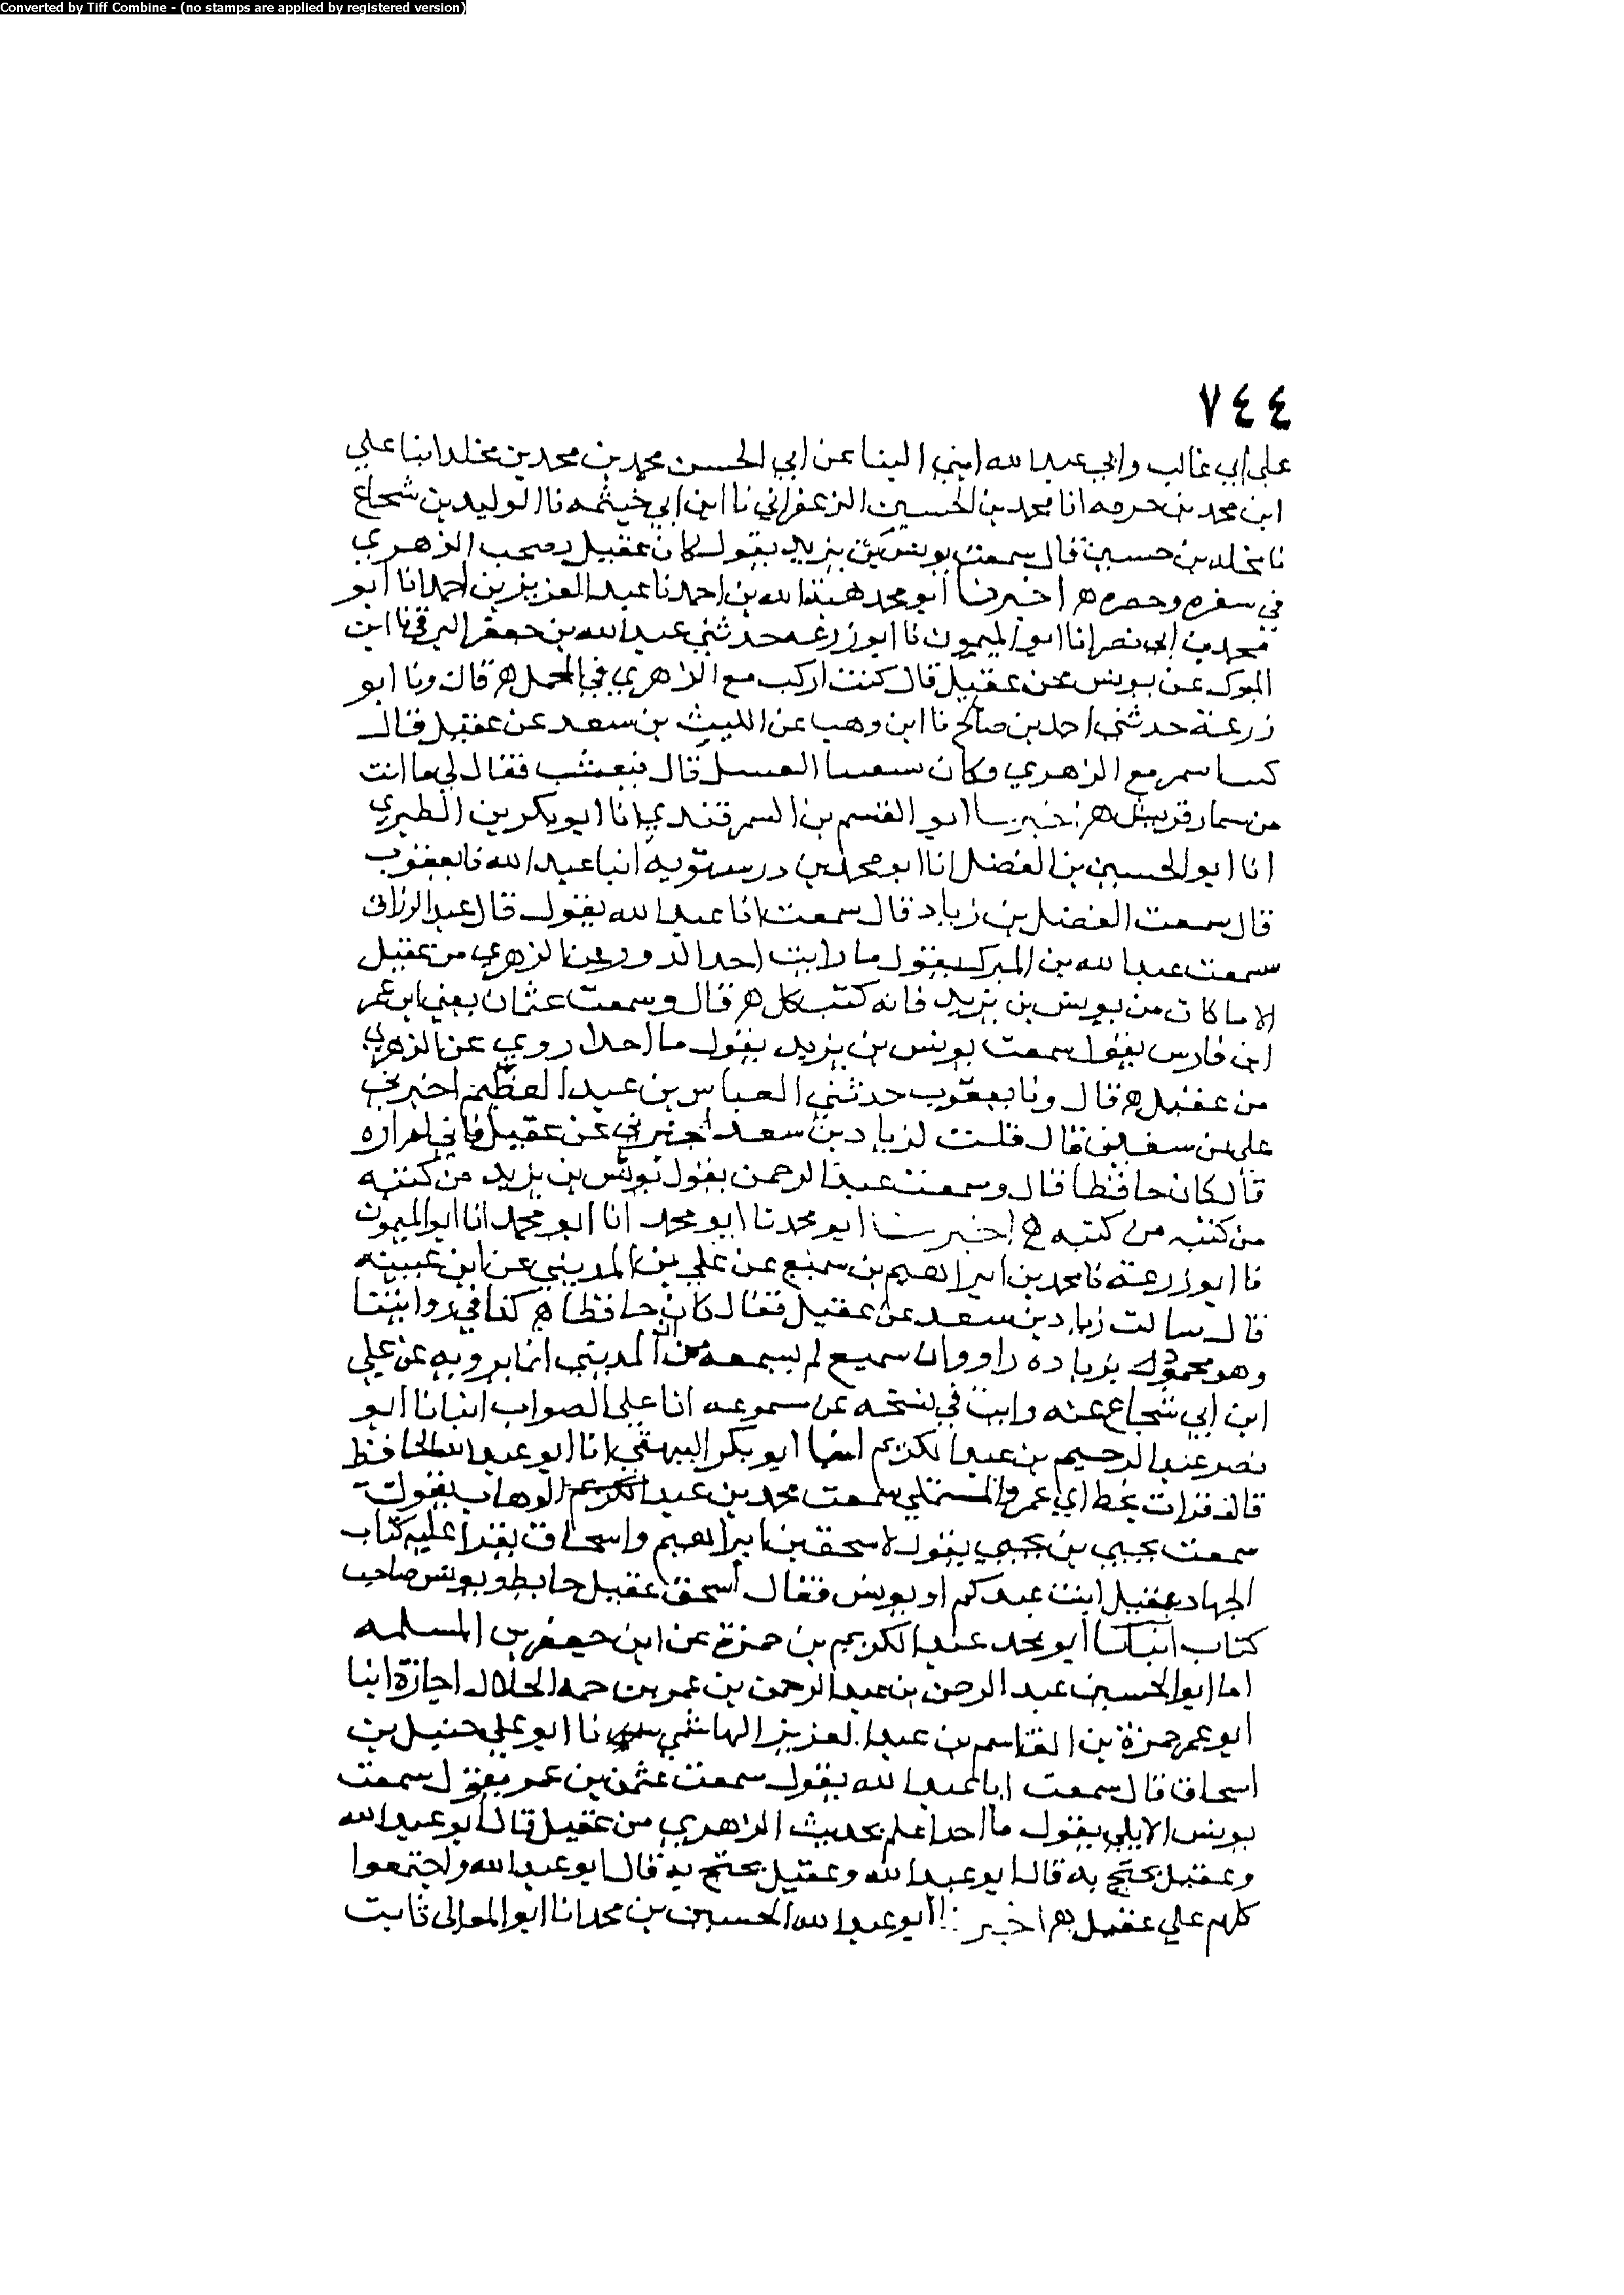 Converted by Tiff Combine - (no stamps are applied by registered version)
٧٤٤
على ابي غالب وابي عبد الله ابني البنا عن ابي الحسن محمد بن محمد بن مخلد انبا علي
ابن محمد بن خزفه انا محمد بن الحسين الزعفراني نا ابن ابي خيثمه نا الوليد بن شجاع
نا مخلد بن حسين قال سمعت يونس بن يزيد يقول كان عقيل يصحب الزهري
في سفره وحضره ه اخبرنا ابو محمد هبة الله بن احمد نا عبد العزيز بن احمد انا ابو
محمد بن ابي نصر انا ابو الميمون نا ابو زرعه حدثني عبد الله بن جعفر الرقي نا ابن
المبرك عن يونس عن عقيل قال كنت اركب مع الزهري في المحمل ه قال ونا ابو
زرعة حدثني احمد بن صالح نا ابن وهب عن الليث بن سعد عن عقيل قال
مع الزهري وكان العسل قال فنعست فقال لي ما انت
من سمار قريش ه اخبرنا ابو القسم بن السمرقندي انا ابو بكر بن الطبري
انا ابو الحسين بن الفضل انا ابو محمد بن درستويه انبا عبد الله نا يعقوب
قال سمعت الفضل بن زياد قال سمعت ابا عبد الله يقول قال عبد الرزاق
سمعت عبد الله بن المبرك يقول ما رايت احدا اروي عن الزهري من عقيل
الا ما كان من يونس بن يزيد فانه كتب كل ه قال وسمعت عثمان يعني ابن عمر
ابن فارس يقول سمعت يونس بن يزيد يقول ما احدا روي عن الزهري
من عقيل ه قال ونا يعقوب حدثني العباس بن عبد العظيم اخبرني
علي بن سفين قال قلت لزياد بن سعد اخبرني عن عقيل فاني لم اره
قال كان حافظا قال وسمعت عبد الرحمن يقول يونس بن يزيد من كتبه
من كتبه من كتبه ه اخبرنا ابو محمد نا ابو محمد انا ابو محمد انا ابو الميمون
نا ابو زرعة نا محمد بن ابراهيم بن سميع عن علي بن المديني عن ابن عيينه
قال سالت زياد بن سعد عن عقيل فقال كان حافظا ه كذا في روايتنا
وهو بزياده راو وابن سميع لم يسمعه من ابن المديني انما يرويه عن علي
ابن ابي شجاع عنه رايت في نسخه عن مسموعه انا على الصواب انبانا ابو
نصر عبد الرحيم بن عبد الكريم انبا ابو بكر البيهقي انا ابو عبد الله الحافظ
قال قرات بخط ابي عمرو المستملي سمعت محمد بن عبد الكريم الوهاب يقول
سمعت يحيي بن يحيي يقول لاسحق بن ابراهيم واسحاق يقرا عليه كتاب
الجهاد عقيل اثبت عندكم او يونس فقال اسحق عقيل حافظ ويونس صاحب
كتاب انبانا ابو محمد عبد الكريم بن حمزة عن ابن جعفر بن المسلمه
انا ابو الحسين عبد الرحمن بن عبد الرحمن بن عمر بن حمه الخلال اجازة انبا
ابو عمر حمزة بن القاسم بن عبد العزيز الهاشمي نا ابو علي حنبل بن
اسحاق قال سمعت ابا عبد الله يقول سمعت عثمن بن عمر يقول سمعت
يونس الايلي يقول ما احدا علم بحديث الزهري من عقيل قال ابو عبد الله
وعقيل يحتج به قال ابو عبد الله وعقيل يحتج به قال ابو عبد الله واجتمعوا
كلهم علي عقيل ه اخبرنا ابو عبد الله الحسين بن محمد انا ابو المعالى ثابت